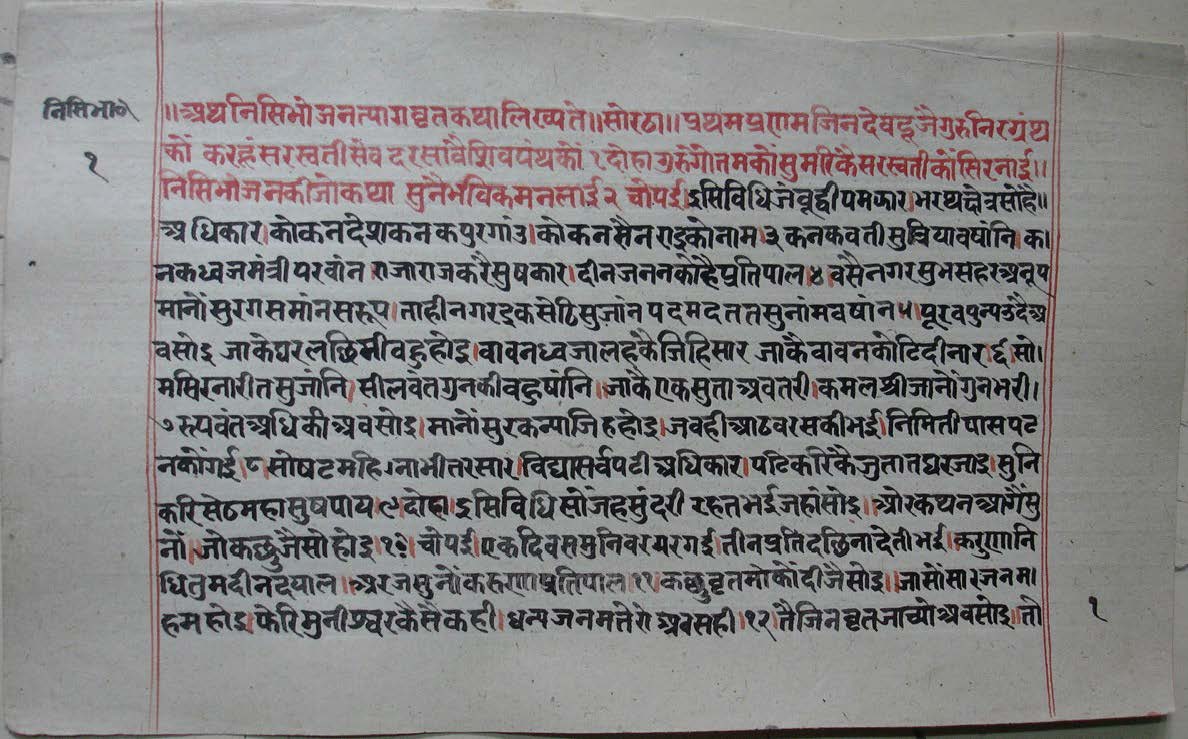 निसिभो०
१
॥अथ निसिभोजनत्यागवृतकथा लिख्यते॥ सोरठा॥ प्रथम प्रणम जिनदेव दूजै गुरु निरग्रंथ
कों करहूं सरस्वती सेव दरसावै शिवपंथकों १ दोहा गुरु गोतमकों सुमरिकै सरस्वतीकों सिरनाई॥
निसिभोजनकी जो कथा सुनैं भविक मनलाई २ चोपई। इसिविधि जंबूद्वीप मझार। भरथक्षेत्र सोहै॥
अधिकार। कोकनदेश कनकपुर गांउ। कोकनसैन राइको नाम। ३ कनकवती सुत्रिया वषांनि। क।
नकध्वज मंत्री परवांन राजा राज करै सुषकार। दीनजननकों है प्रतिपाल ४ वसै नगर सुभ सहर अनूप
मानों सुरग समांन सरूप। ताही नगर इक सेठि सुजांन पदमदत तसु नांम वषांन ५। पूरव पुन्य उदै अ
वसोइ जाके घर लछिमी वहु होइ। वावन ध्वजा लहकै जिहि सार जाकै वावन कोटि दीनार ६ सो।
मसिर नारी त सुजांनि। सीलवंत गुनकी वहु षांनि। जाकै एक सुता अवतरी। कमलश्री जानों गुनभरी।
७ रुपवंत अधिकी अवसोइ। मानों सुरकन्या जिह होइ। जवही आठ वरसकी भई। निमिती पास पट
नकों गई। ८ सो षटमहिना भीतर सार। विद्या सर्व पटी अधिकार। पटिकरिकै जु तात घर जाइ। सुनि
करि सेठ महा सुष पाय ९ दोहा। इसिविधि सों जह सुंदरी रहत भई जहां सोइ। ओर कथन आगें सु
नों। जो कछु जैसो होइ। १०। चोपई। एक दिवस मुनिवर घर गई। तीन प्रति दछिना देती भई। करुणानि
धि तुम दीनदयाल। अरज सुनों करुणाप्रतिपाल ११ कछु वृत मोकों दीजै सोइ। जासों सार जनम।
हम होइ। फेरि मुनीश्वर कैसै कही। धन्य जनम तेरो अव सही। १२ तै जिनवृत जाच्यो अवसोइ। तो
१